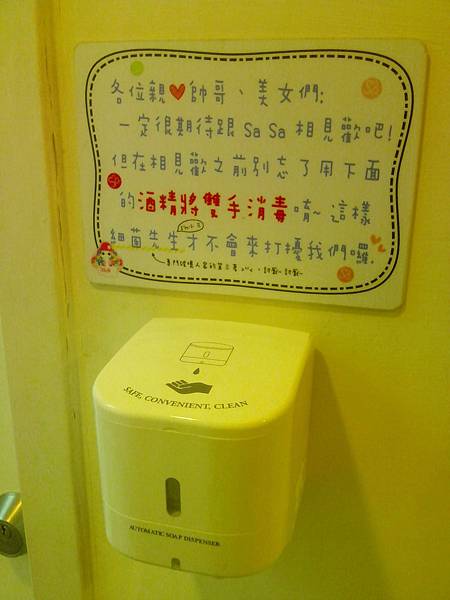 各位親❤帥哥、美女們:
一定很期待跟 SaSa 相見歡吧!
但在相見歡之前別忘了用下面
的酒精將雙手消毒唷~這樣
細菌先生才不會來打擾我們囉.
SAFE, CONVENIENT, CLEAN
AUTOMATIC SOAP DISPENSER